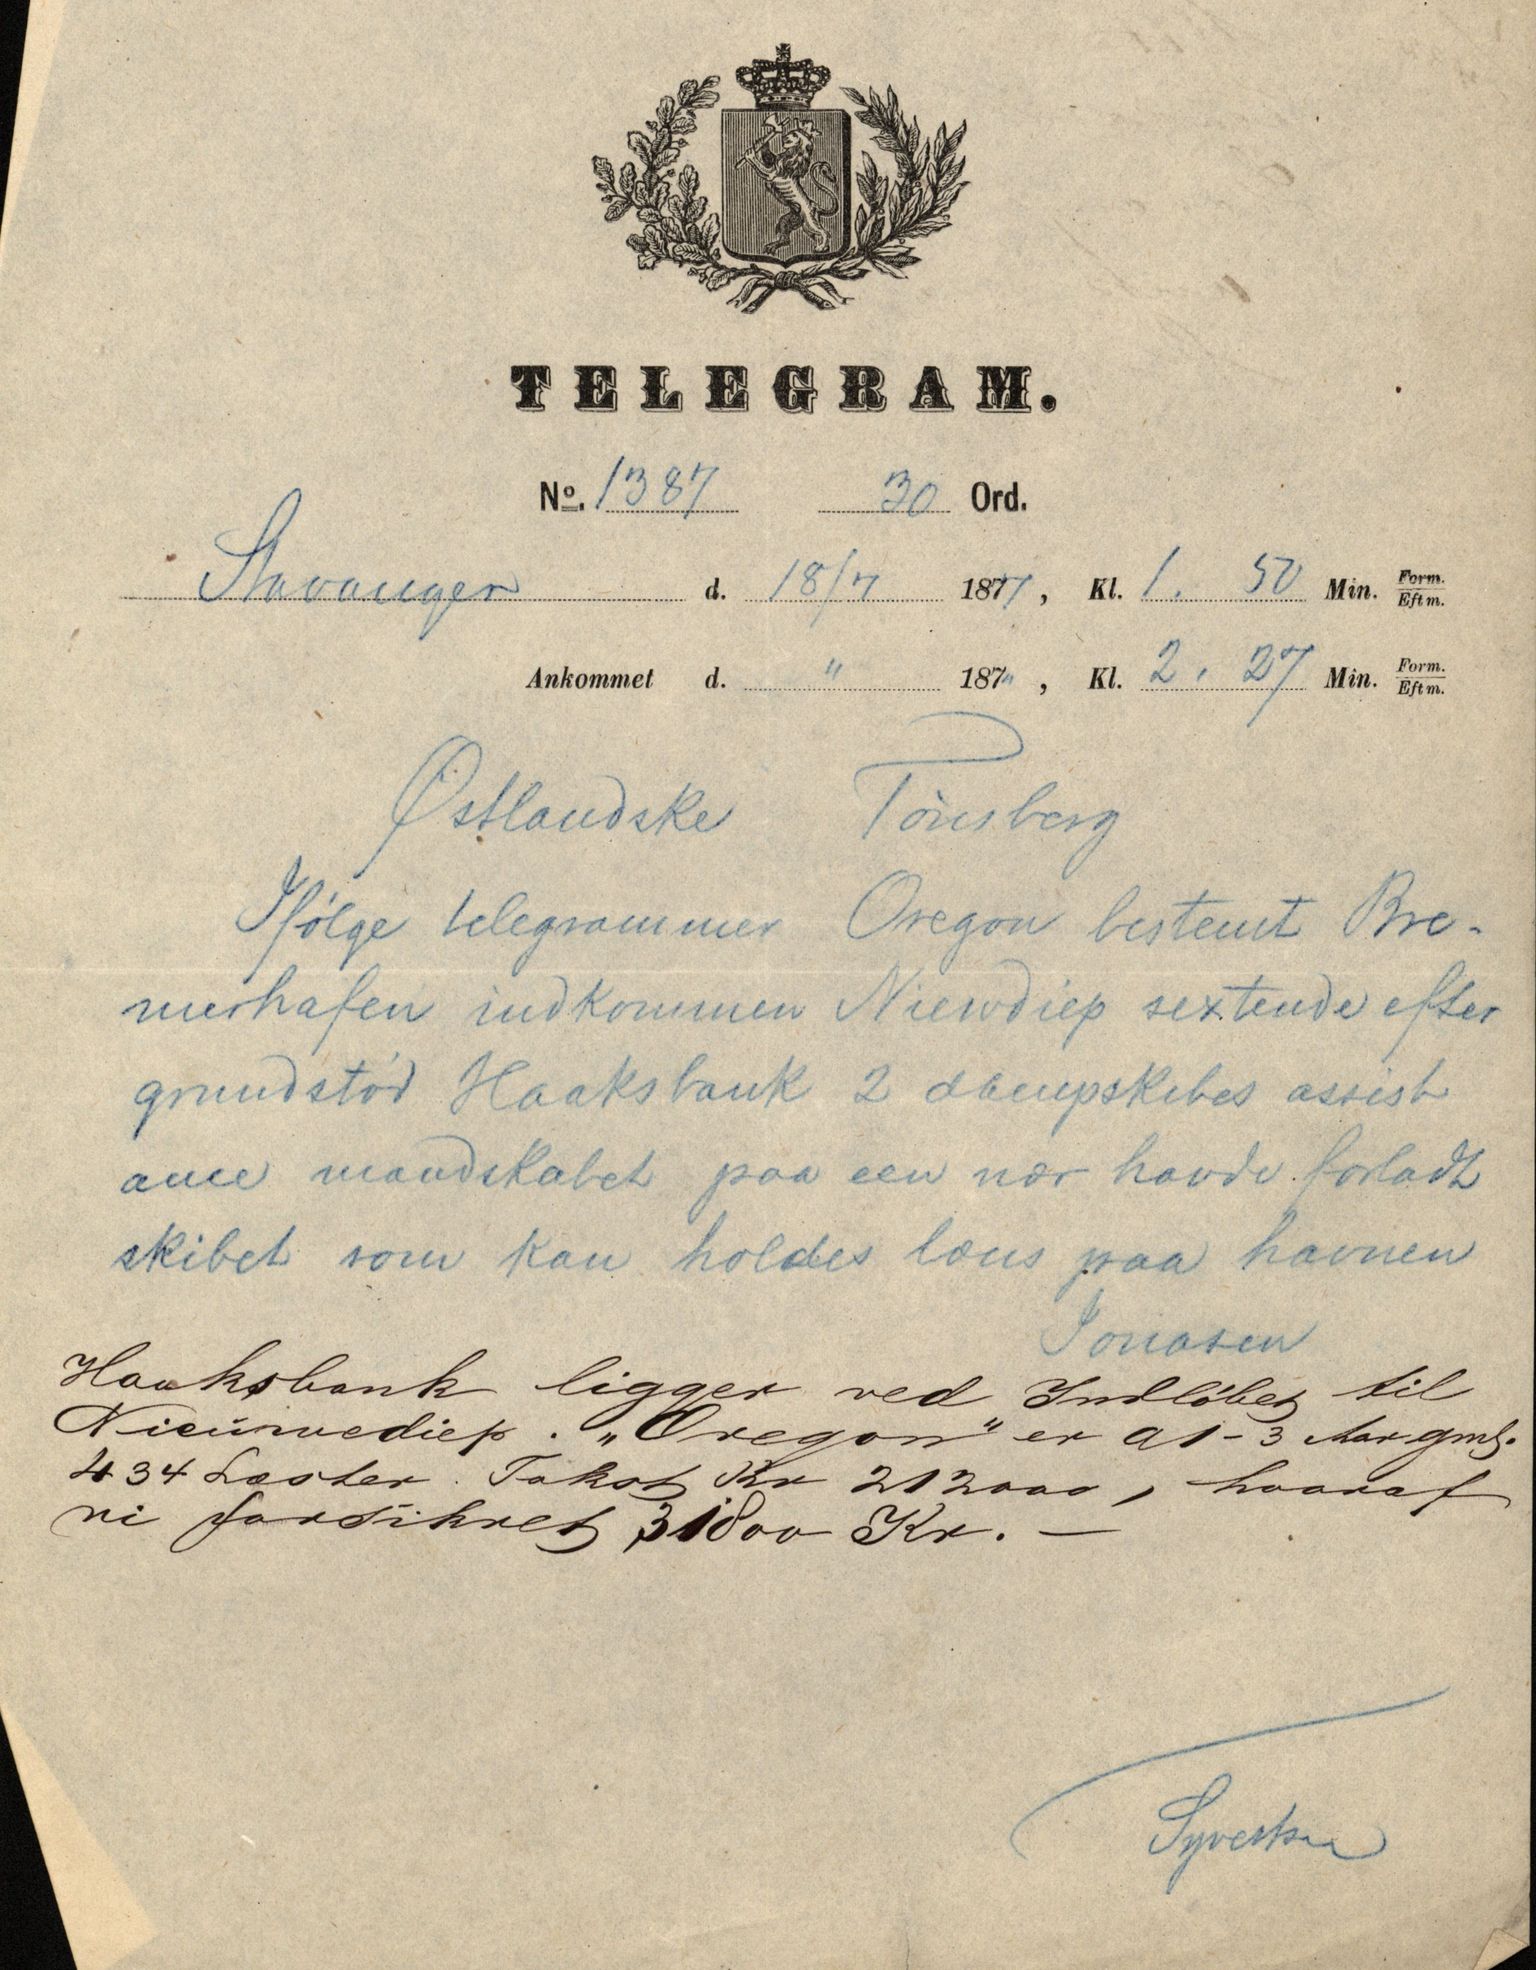 TELEGRAM.
No. 1387 30 Ord.
Stavanger d. 18/7 1877, Kl. 1. 50 Min. Form. Eftm.
Ankommet d. " 187", Kl. 2. 27 Min. Form. Eftm.
Østlandske Tönsberg
Ifølge telegrammer Oregon bestemt Bre-
merhafen indkommen Niewdiep sextende efter
grundstød Haaksbank 2 dampskibes assist
ance mandskabet paa een nær havde forladt
skibet som kan holdes læns paa havnen
Jonasen
Haaksbank ligger ved Indløbet til
Nieuwediep. „Oregon" er A1 - 3 Aar gml.
434 Læster. Takst Kr 212000, hvoraf
vi forsikret 31800 Kr. —